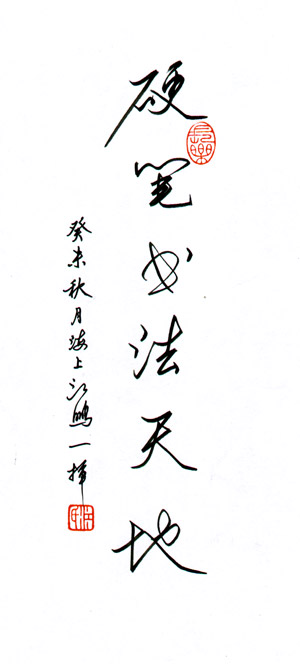 硬笔书法天地
癸未秋月海上江鹏一挥